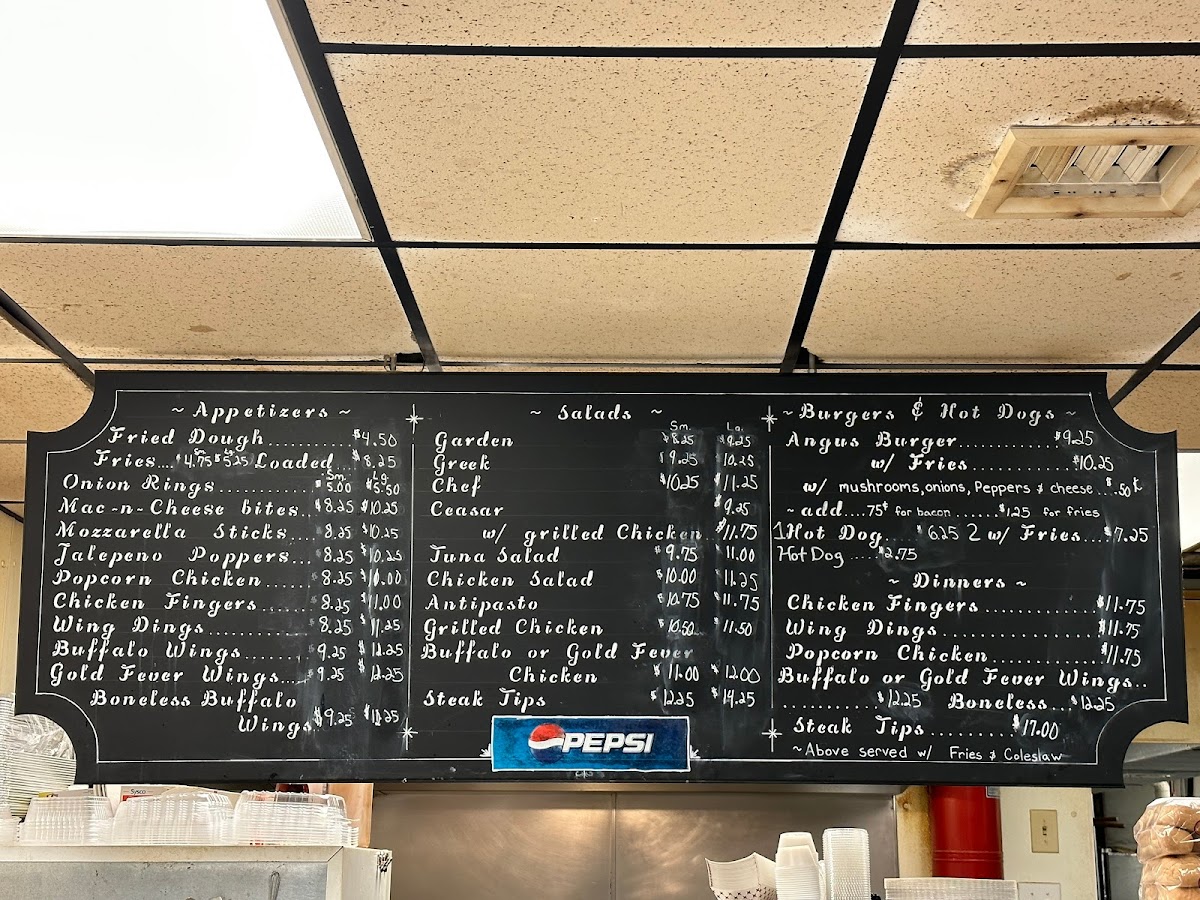 ~ Appetizers ~
Fried Dough..........$4.50
Sm. Lg.
Fries....$4.75 $5.25 Loaded...$8.25
Sm. Lg.
Onion Rings............$5.00 $5.50
Mac-n-Cheese bites..$8.25 $10.25
Mozzarella Sticks....8.25 $10.25
Jalepeno Poppers...$8.25 $10.25
Popcorn Chicken......$8.25 $11.00
Chicken Fingers.......8.25 $11.00
Wing Dings.............$8.25 $11.25
Buffalo Wings........$9.25
Gold Fever Wings....$9.25
Boneless Buffalo
Wings $9.25
~ Salads ~
Sm. Lg.
Garden $8.25 $9.25
Greek $9.25 $10.25
Chef $10.25 $11.25
Ceasar $9.25
w/ grilled Chicken..$11.75
Tuna Salad $9.75 $11.00
Chicken Salad $10.00 $11.25
Antipasto $10.75 $11.75
Grilled Chicken $10.50 $11.50
Buffalo or Gold Fever
Chicken $11.00 $12.00
Steak Tips $12.25 $14.25
PEPSI
~ Burgers & Hot Dogs ~
Angus Burger............$9.25
w/ Fries............$10.25
w/ mushrooms, onions, Peppers & cheese...$.50¢
~ add....75¢ for bacon......$1.25 for fries
1 Hot Dog....$6.25 2 w/ Fries...$7.25
Hot Dog....$2.75
~ Dinners ~
Chicken Fingers..............$11.75
Wing Dings....................$11.75
Popcorn Chicken..............$11.75
Buffalo or Gold Fever Wings..
...........$12.25 Boneless...$12.25
Steak Tips..........$17.00
~Above served w/ Fries & Coleslaw
Sysco